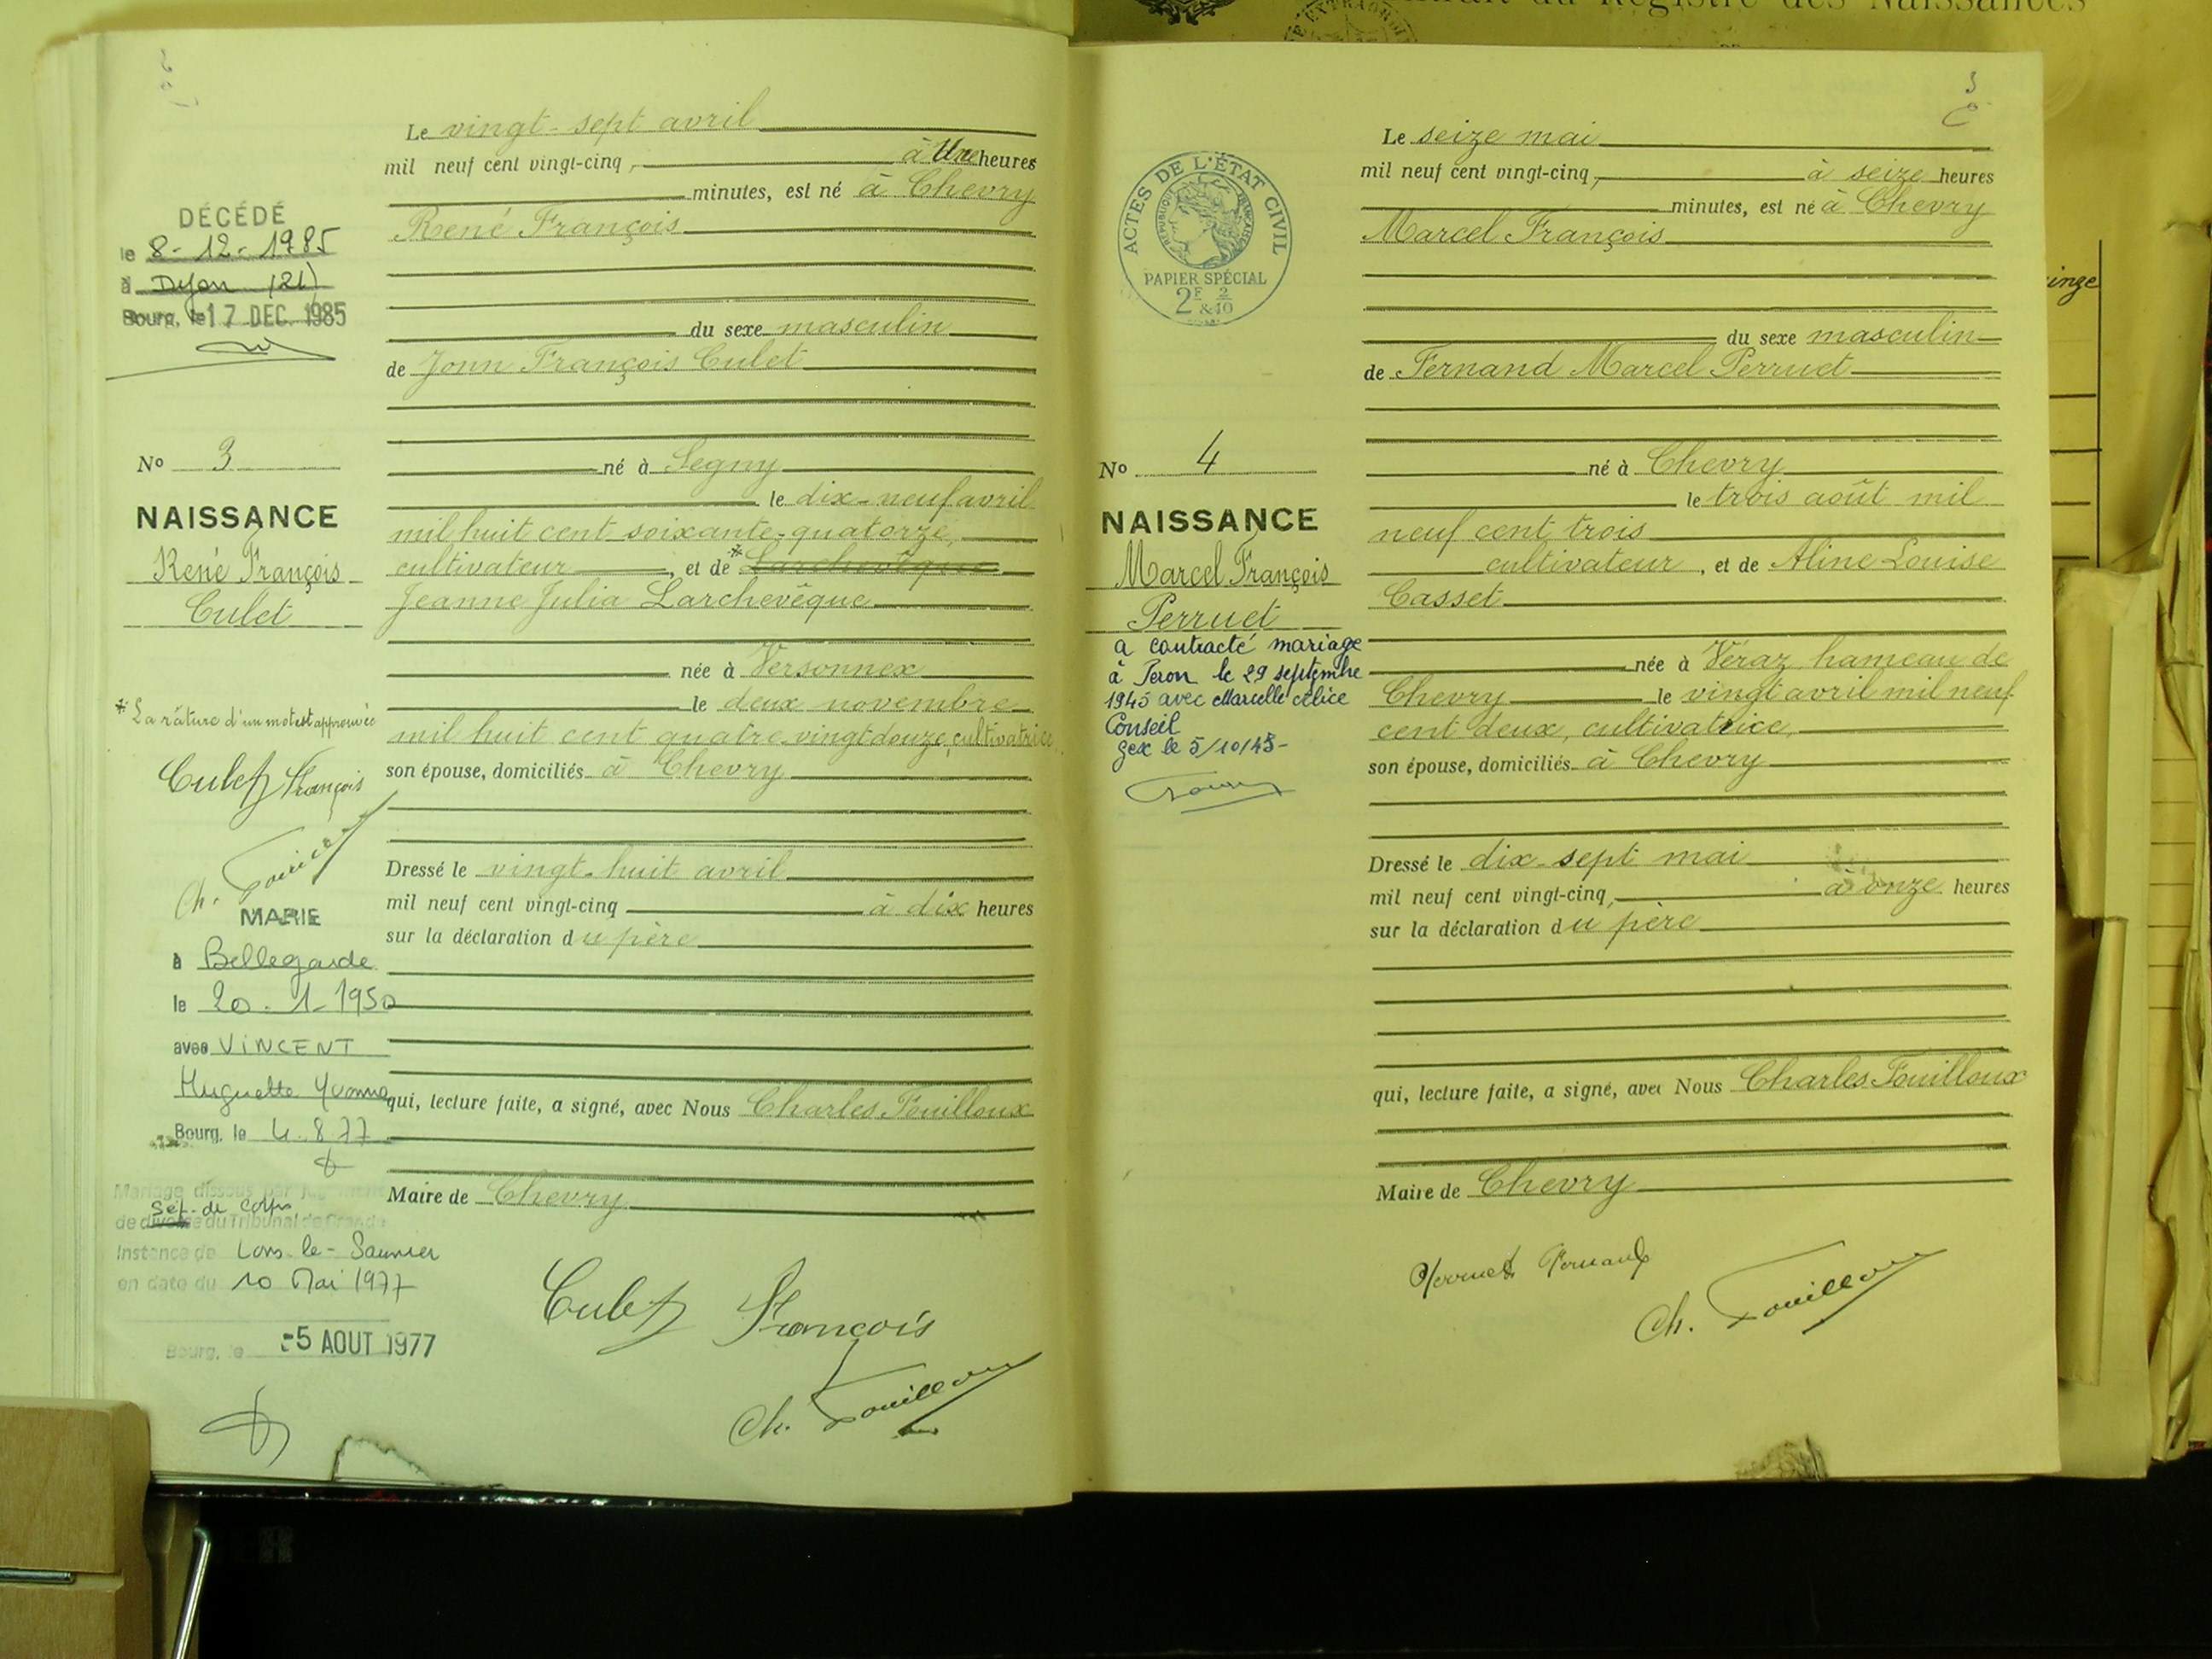 Registre des Naissances
Le vingt-sept avril
mil neuf cent vingt-cinq, à Une heures
minutes, est né à Chevry
René François
du sexe masculin
de Jonn François Culet
né à Segny
le dix-neuf avril
mil huit cent soixante-quatorze,
cultivateur, et de * Larchevêque
Jeanne Julia Larchevêque
née à Versonnex
le deux novembre
mil huit cent quatre vingt douze, cultivatrice
son épouse, domiciliés à Chevry
Dressé le vingt-huit avril
mil neuf cent vingt-cinq à dix heures
sur la déclaration du père
qui, lecture faite, a signé, avec Nous Charles Fouilloux
Maire de Chevry
Culet François
Ch. Fouilloux
DÉCÉDÉ
le 8-12-1985
à Dijon (21)
Bourg, le 17 DEC. 1985
No 3
NAISSANCE
René François
Culet
* La râture d'un mot est approuvée
Culet François
Ch. Fouilloux
MARIE
à Bellegarde
le 20-1-1950
avec VINCENT
Huguette Yvonne
Bourg, le 4.8.77
Mariage dissous par jugement
Sép. de Corps
de divorce du Tribunal de Grande
Instance de Lons-le-Saunier
en date du 10 Mai 1977
Bourg, le -5 AOUT 1977
3
Le seize mai
mil neuf cent vingt-cinq, à seize heures
minutes, est né à Chevry
Marcel François
du sexe masculin
de Fernand Marcel Perruet
né à Chevry
le trois août mil
neuf cent trois
cultivateur, et de Aline Louise
Casset
née à Véraz hameau de
Chevry le vingt avril mil neuf
cent deux, cultivatrice,
son épouse, domiciliés à Chevry
Dressé le dix-sept mai
mil neuf cent vingt-cinq, à onze heures
sur la déclaration du père
qui, lecture faite, a signé, avec Nous Charles Fouilloux
Maire de Chevry
Perruet Fernand
Ch. Fouilloux
ACTES DE L'ÉTAT CIVIL
RÉPUBLIQUE FRANÇAISE
PAPIER SPÉCIAL
2F 2/10
&
No 4
NAISSANCE
Marcel François
Perruet
a contracté mariage
à Peron le 29 septembre
1945 avec Marcelle Célice
Conseil
Gex le 5/10/45-
inge